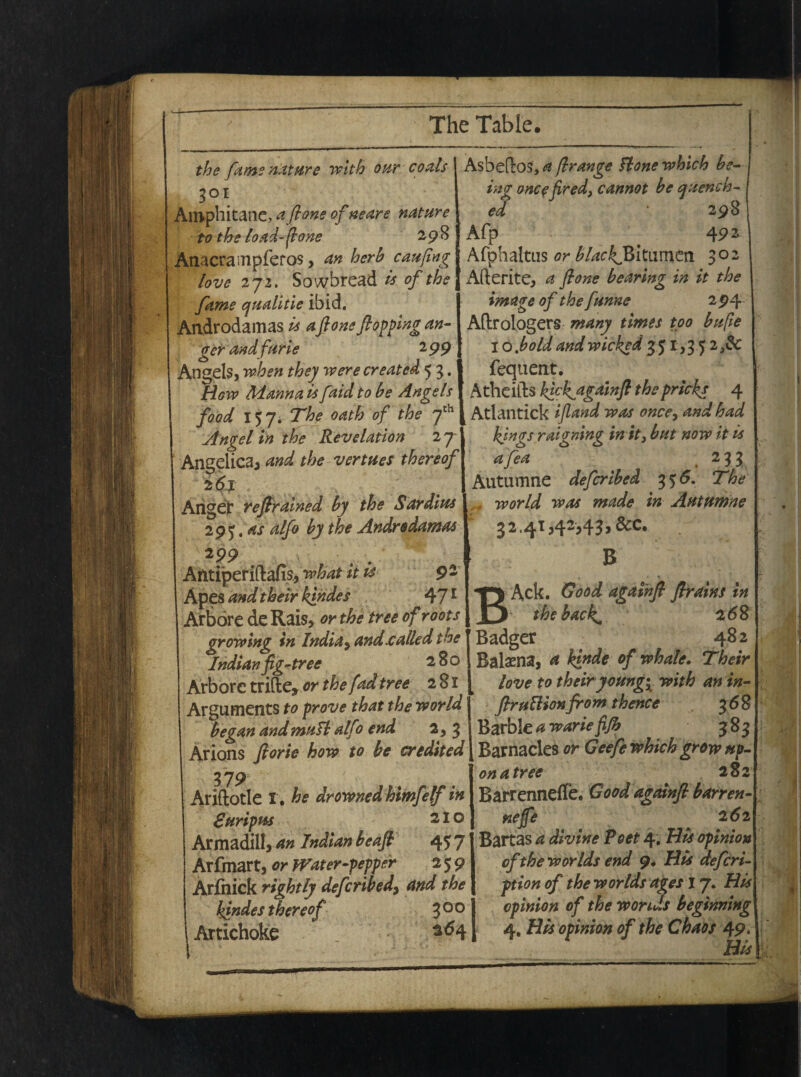 The Table.
the ſame nature with our coals
301
Amphitane, a ſtone of neare nature
to the load-ſtone 298
Anacrampſeros, an herb cauſing
love 272. Sowbread is of the
ſame qualitie ibid.
Androdamas is a ſtone ſtopping an-
ger and furie 299
Angels, when they were created 53.
How Manna is ſaid to be Angels
food 157. The oath of the 7th
Angel in the Revelation 27
Angelica, and the vertues thereof
261
Anger reſtrained by the Sardius
295. as alſo by the Androdamas
299
Antiperiſtaſis, what it is 92
Apes and their kindes 471
Arbore de Rais, or the tree of roots
growing in India, and called the
Indian fig-tree 280
Arbore triſte, or the ſad tree 281
Arguments to prove that the world
began and muſt alſo end 2, 3
Arions ſtorie how to be credited
379
Ariſtotle 1. he drowned himſelf in
Euripus 210
Armadill, an Indian beaſt 457
Arſmart, or Water-pepper 259
Arſnick rightly deſcribed, and the
kindes thereof 300
Artichoke 264
Asbeſtos, a ſtrange ſtone which be-
ing once fired, cannot be quench-
ed 298
Aſp 492
Aſphaltus or black Bitumen 302
Aſterite, a ſtone bearing in it the
image of the ſunne 294
Aſtrologers many times too buſie
10. bold and wicked 351,352,&c
ſequent.
Atheiſts kick againſt the pricks 4
Atlantick iſland was once, and had
kings raigning in it, but now it is
a ſea 233
Autumne deſcribed 356. The
world was made in Autumne
32.41,42,43, &c.
B
BAck. Good againſt ſtrains in
the back 268
Badger 482
Balæna, a kinde of whale. Their
love to their young; with an in-
ſtruction from thence 368
Barble a warie fiſh 383
Barnacles or Geeſe which grow up-
on a tree 282
Barrenneſſe. Good againſt barren-
neſſe 262
Bartas a divine Poet 4. His opinion
of the worlds end 9. His deſcri-
ption of the worlds ages 17. His
opinion of the worlds beginning
4. His opinion of the Chaos 49.
His